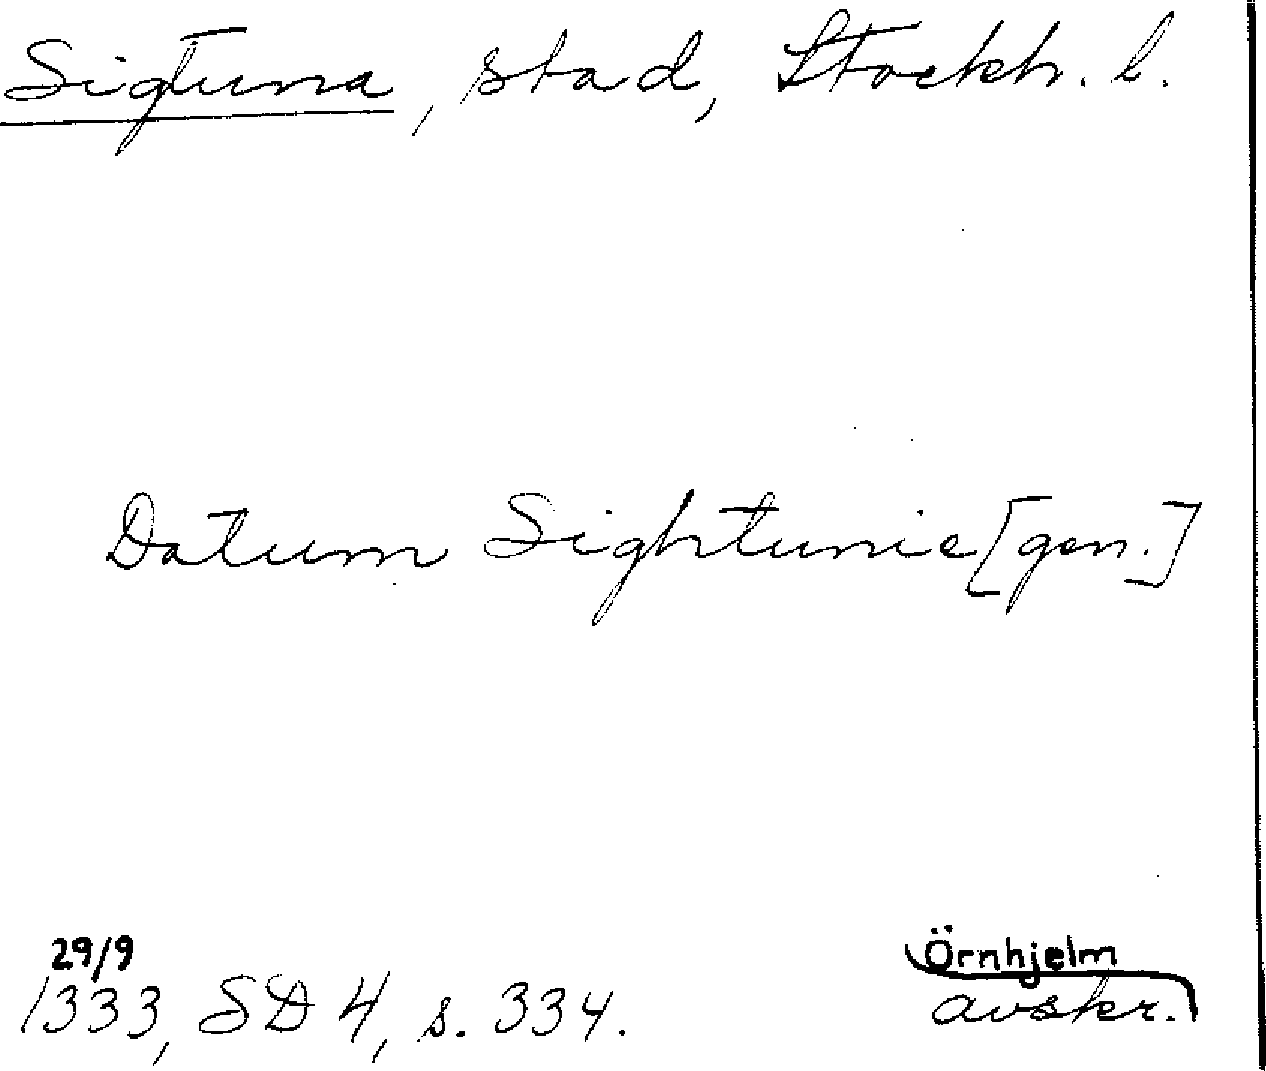 Sigtuna, stad, Stockh. l.
Datum Sightunie [gen.]
29/9
1333, SD 4, s. 334.
Örnhjelm
avskr.